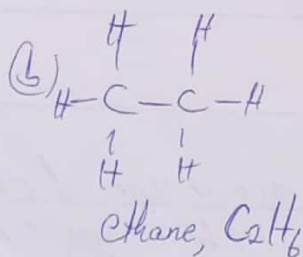 H H
(b) H-C-C-H
H H
ethane, C2H6